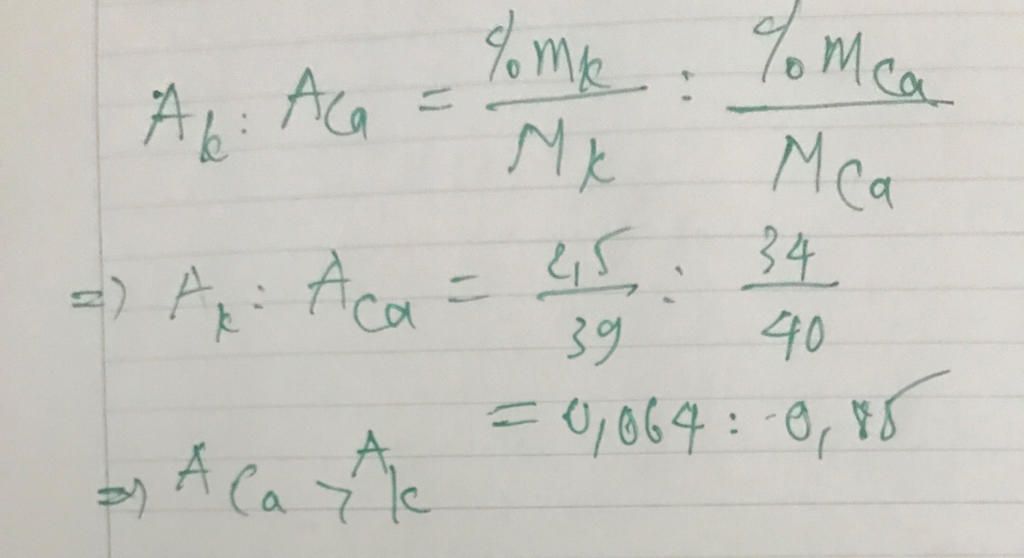 A_k : A_Ca = %m_k / M_k : %m_Ca / M_Ca
=> A_k : A_Ca = 2,5 / 39 : 34 / 40
= 0,064 : 0,85
=> A_Ca > A_k